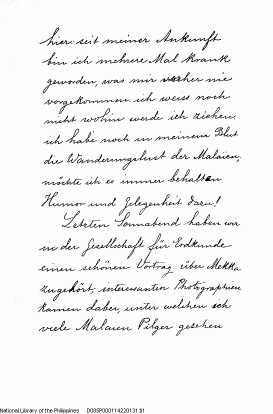 hier: seit meiner Ankunft
bin ich mehrere Mal krank
geworden, was mir vorher nie
vorgekommen ich weiss noch
nicht wohin werde ich ziehen;
ich habe noch in meinem Blut
die Wanderungslust der Malaien,
möchte ich es immer behalten
Humor und Gelegenheit dazu!
Letzten Sonnabend haben wir
in der Gesellschaft für Erdkunde
einen schönen Vortrag über Mekka
zugehört, interessanten Photographien
kamen dabei, unter welchen ich
viele Malaien Pilger gesehen
National Library of the Philippines D00SP000114220131 $1